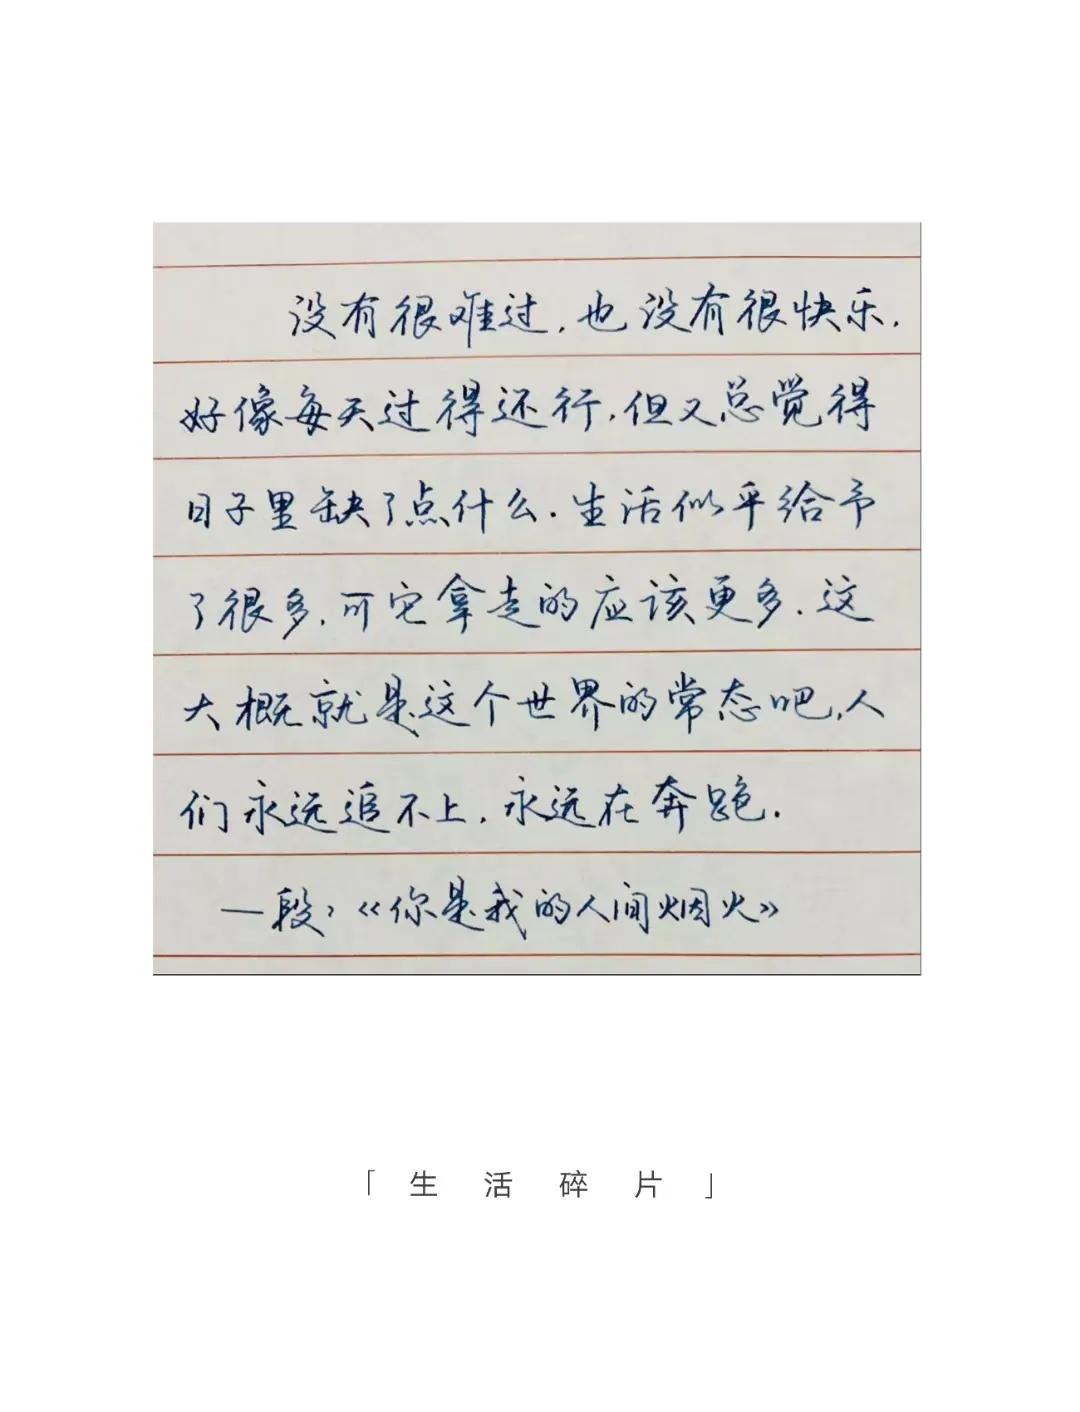 没有很难过,也没有很快乐.
好像每天过得还行,但又总觉得
日子里缺了点什么.生活似乎给予
了很多,可它拿走的应该更多.这
大概就是这个世界的常态吧,人
们永远追不上,永远在奔跑.
—段,《你是我的人间烟火》
「生活碎片」